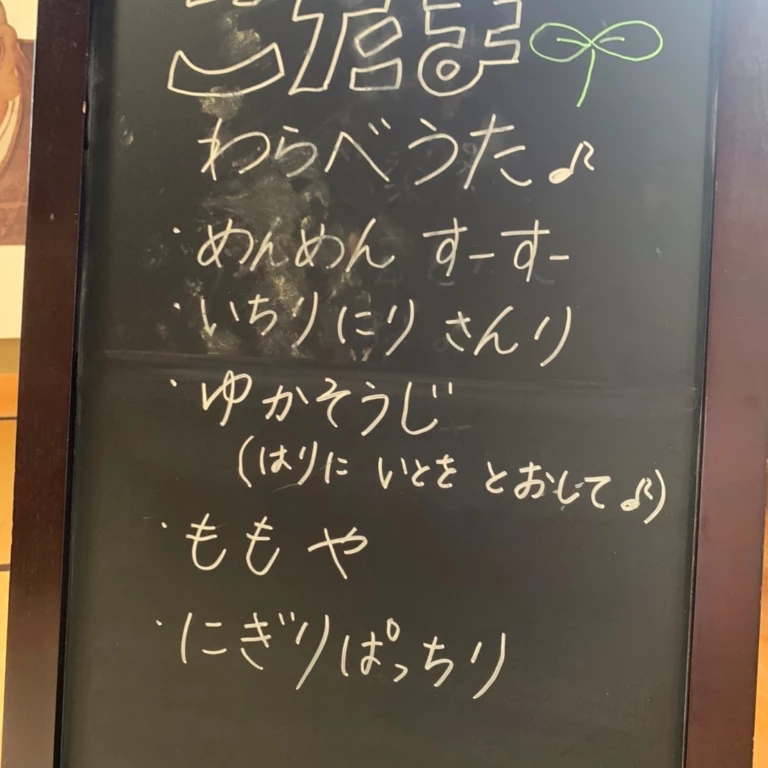 こだま
わらべうた♪
・めんめん すーすー
・いちりにり さんり
・ゆかそうじ
(はりに いとを とおして♪)
・ももや
・にぎりぱっちり